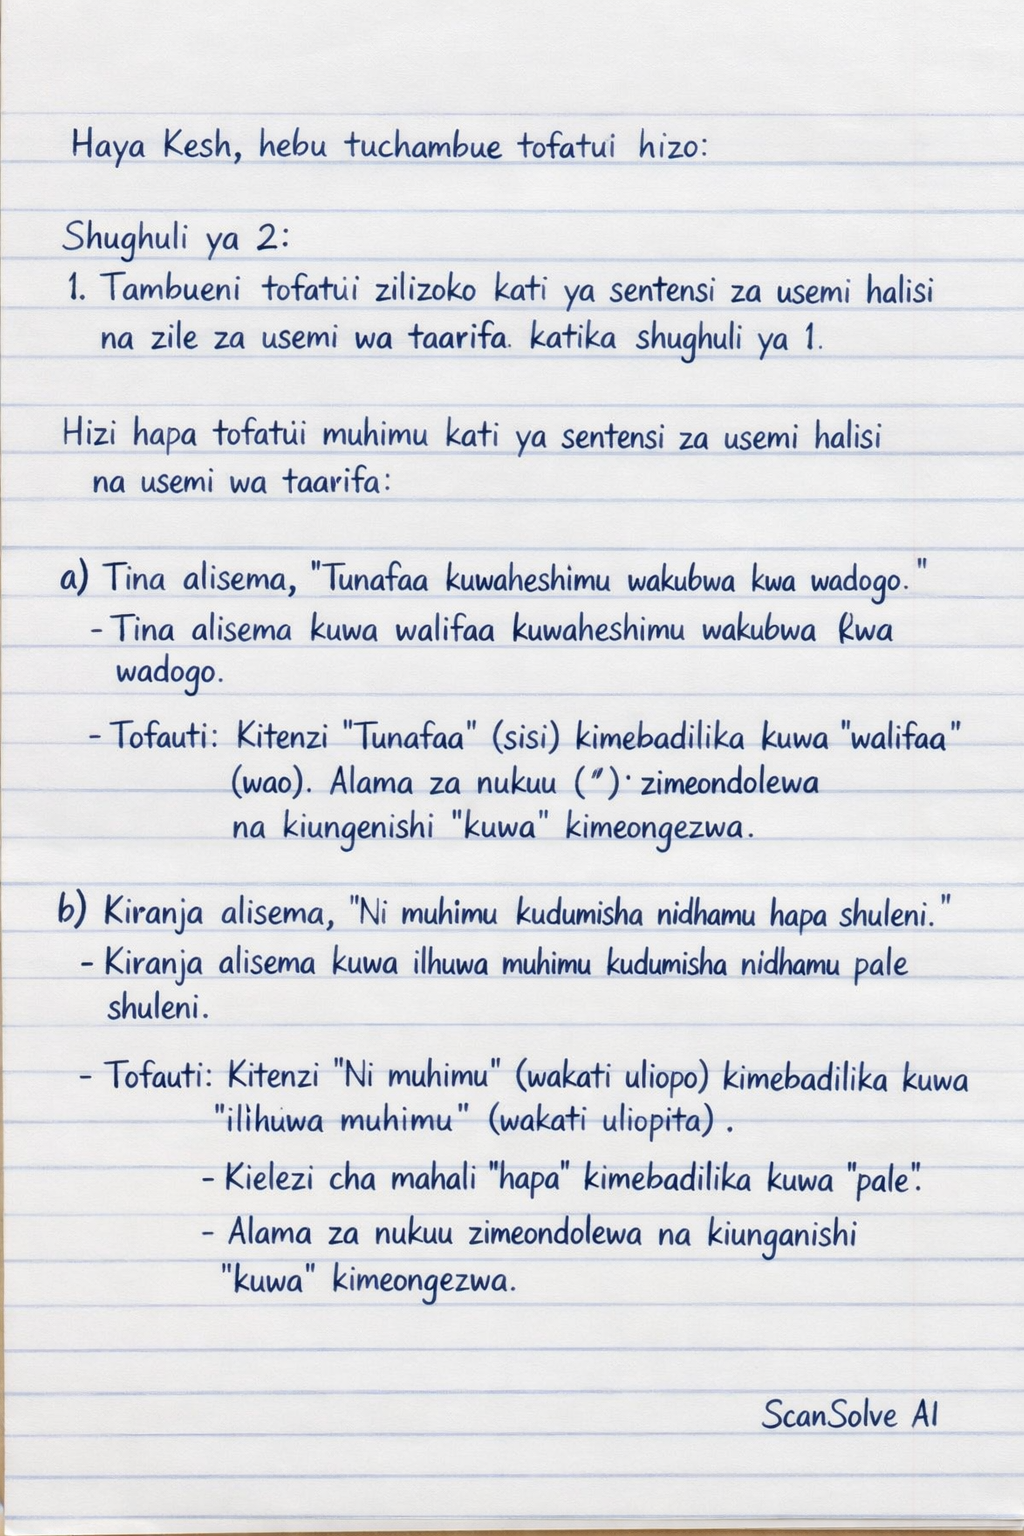 Haya Kesh, hebu tuchambue tofatui hizo:
Shughuli ya 2:
1. Tambueni tofatüi zilizoko kati ya sentensi za usemi halisi
na zile za usemi wa taarifa. katika shughuli ya 1.
Hizi hapa tofatüi muhimu kati ya sentensi za usemi halisi
na usemi wa taarifa:
a) Tina alisema, "Tunafaa kuwaheshimu wakubwa kwa wadogo."
- Tina alisema kuwa walifaa kuwaheshimu wakubwa kwa
wadogo.
- Tofauti: Kitenzi "Tunafaa" (sisi) kimebadilika kuwa "walifaa"
(wao). Alama za nukuu (") zimeondolewa
na kiungenishi "kuwa" kimeongezwa.
b) Kiranja alisema, "Ni muhimu kudumisha nidhamu hapa shuleni."
- Kiranja alisema kuwa ilhuwa muhimu kudumisha nidhamu pale
shuleni.
- Tofauti: Kitenzi "Ni muhimu" (wakati uliopo) kimebadilika kuwa
"ilihuwa muhimu" (wakati uliopita).
- Kielezi cha mahali "hapa" kimebadilika kuwa "pale".
- Alama za nukuu zimeondolewa na kiunganishi
"kuwa" kimeongezwa.
ScanSolve AI